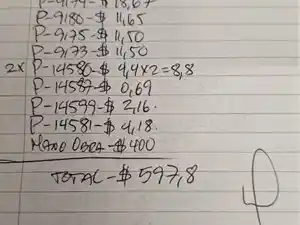 P-9179-$ 18,67
P-9180-$ 11,65
P-9175-$ 11,50
P-9173-$ 11,50
2x P-14580-$ 4,4x2=8,8
P-14587-$ 0,69
P-14599-$ 2,16.
P-14581-$ 4,18.
MANO OBRA-$400
TOTAL-$ 597,8